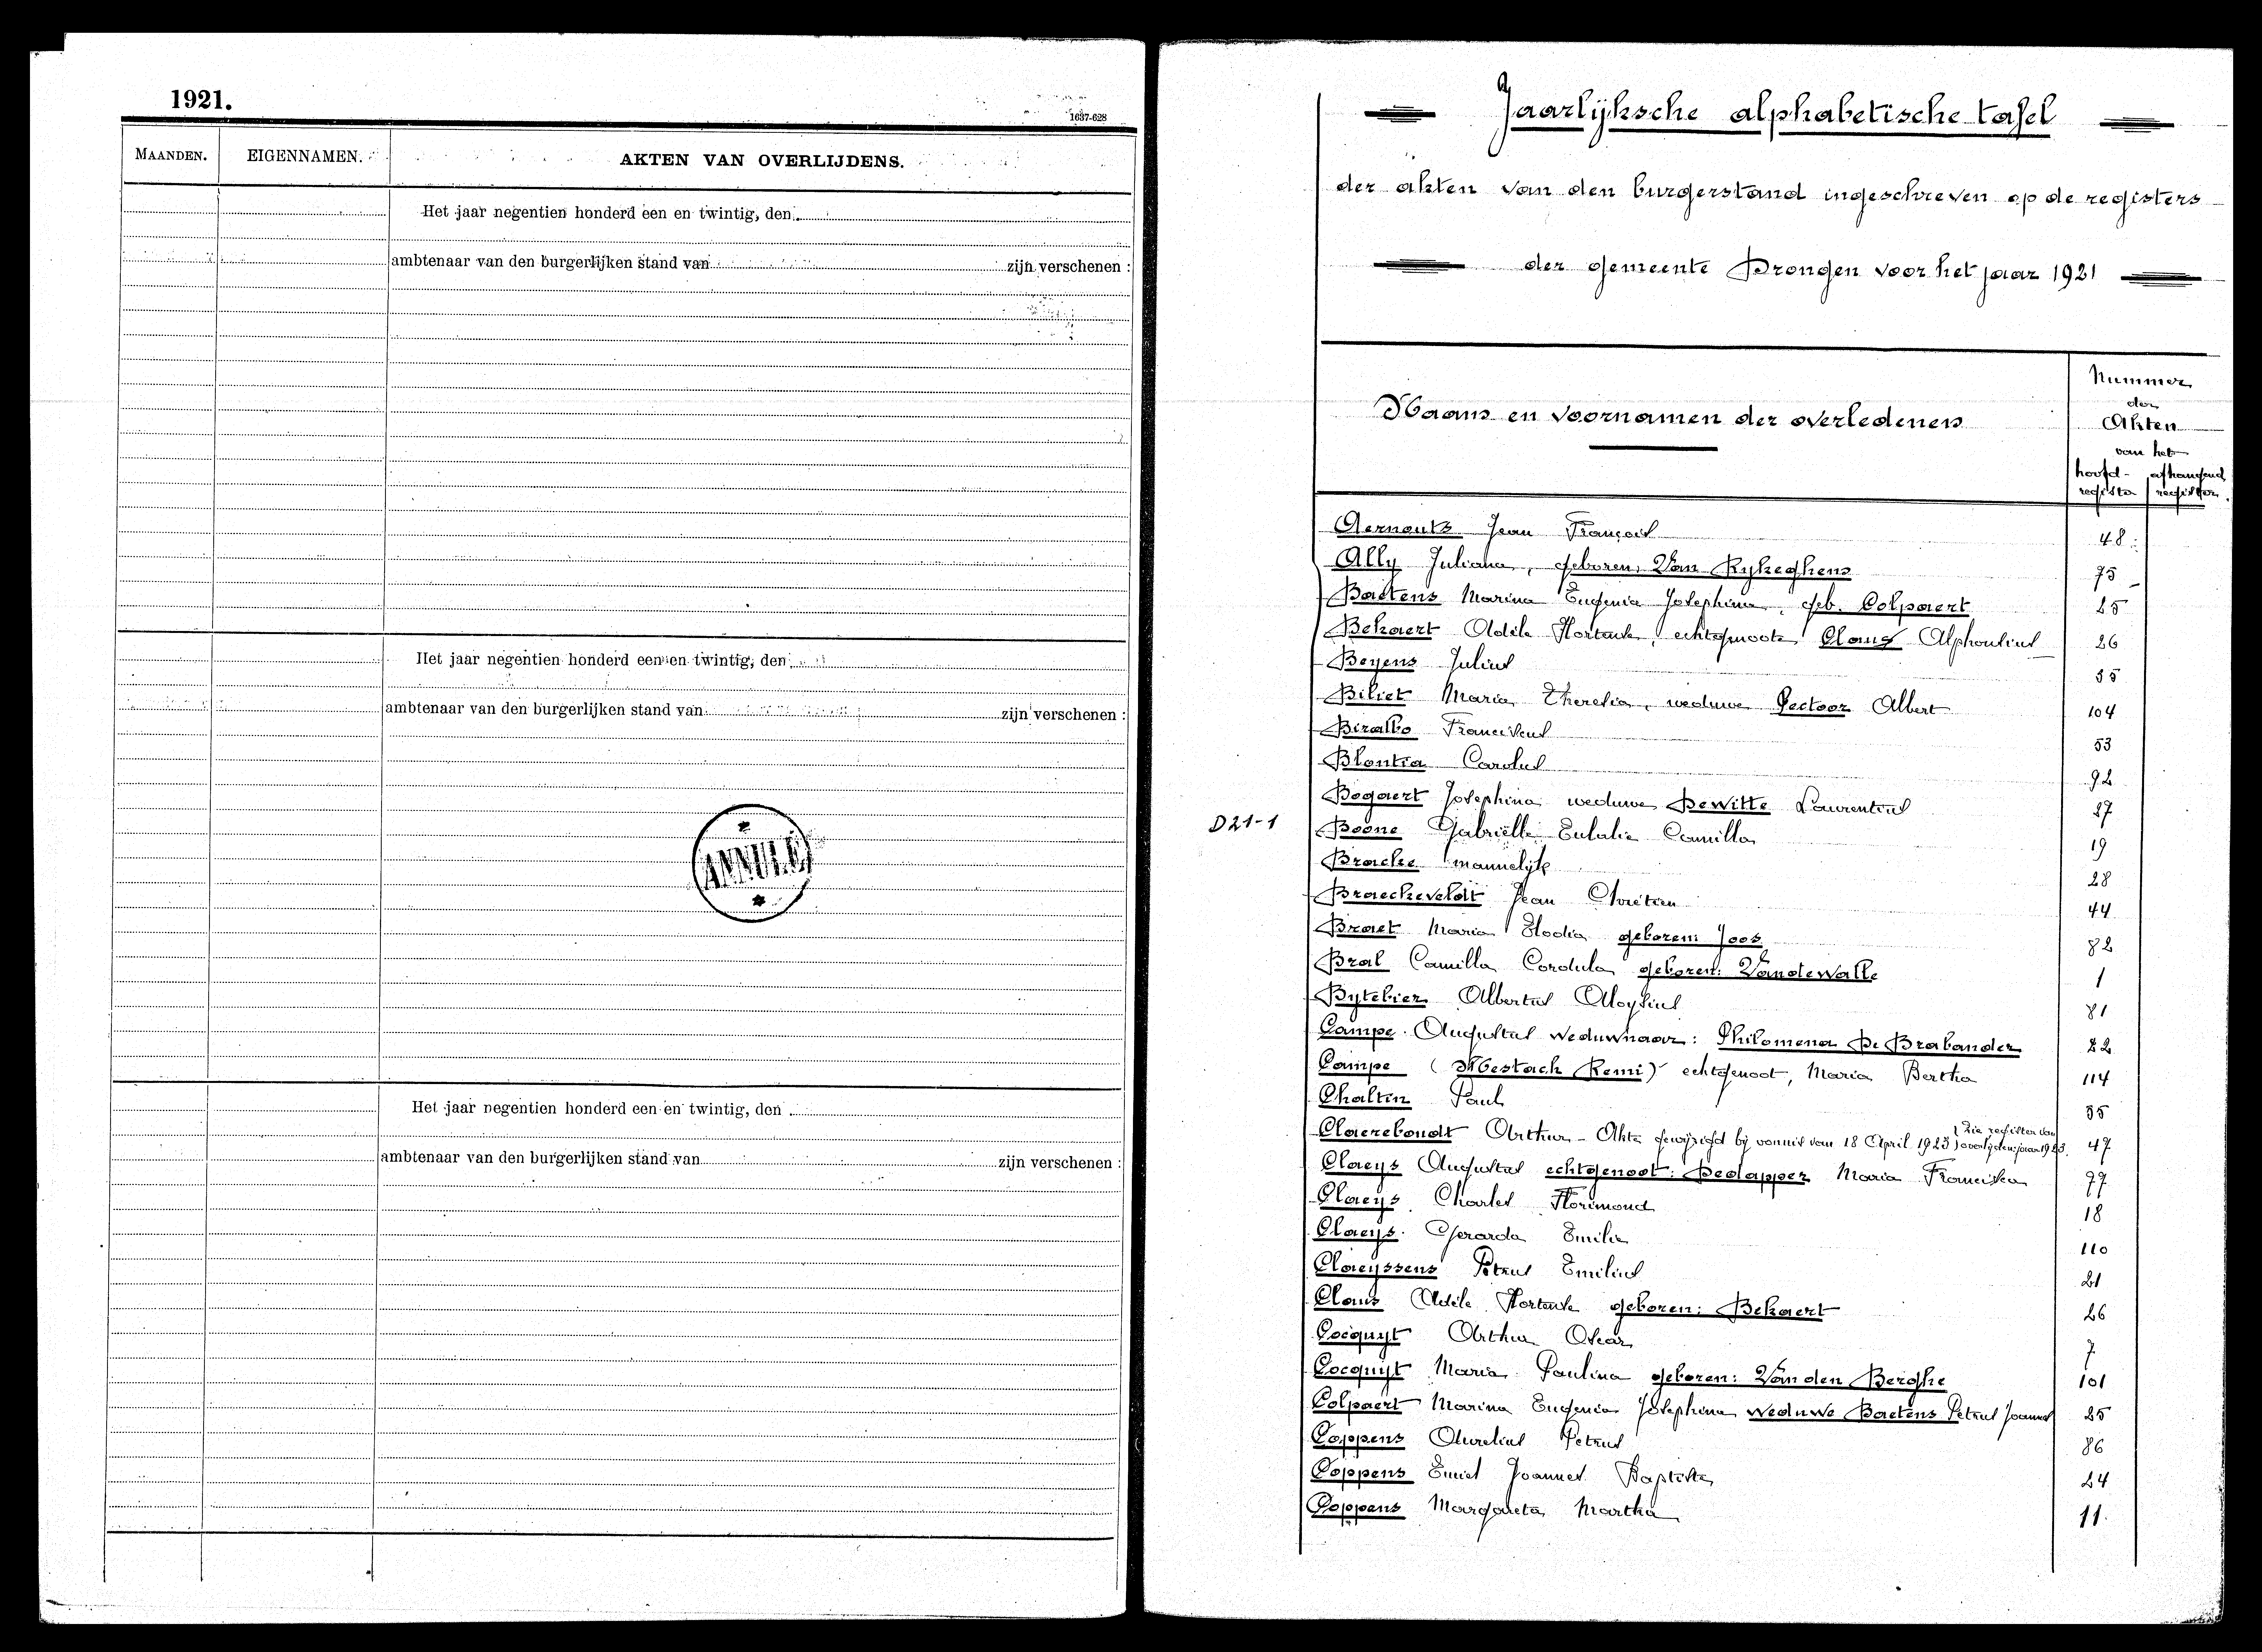 1921.
1637-628
MAANDEN.
EIGENNAMEN.
AKTEN VAN OVERLIJDENS.
Het jaar negentien honderd een en twintig, den
ambtenaar van den burgerlijken stand van zijn verschenen :
Het jaar negentien honderd een en twintig, den
ambtenaar van den burgerlijken stand van zijn verschenen :
ANNULÉ
Het jaar negentien honderd een en twintig, den
ambtenaar van den burgerlijken stand van zijn verschenen :
Jaarlijksche alphabetische tafel
der akten van den burgerstand ingeschreven op de registers
der gemeente Drongen voor het jaar 1921
Naam en voornamen der overledenen
Nummer
der
Akten
van het
hoofd- afhangend
register register
Aernouts Jean François 48
Ally Juliana, geboren: Van Rykeghens 75
Baetens Marina Eugenia Josephina, geb. Colpaert 25
Bekaert Adèle Hortense, echtgenoote Claus Alphonsius 26
Beyens Julius 35
Biliet Maria Theresia, weduwe Pectoor Albert 104
Birallo Franciscus 53
Blontia Carolus 92
Bogaert Josephina weduwe Dewitte Laurentius 27
D21-1
Boone Gabriëlle Eulalie Camilla 19
Bracke mannelijk 28
Braeckeveldt Jean Chrétien 44
Braet Maria Elodia geboren: Joos 82
Bral Camilla Cordula geboren: Vandewalle 1
Bytebier Albertus Aloysius 81
Campe Augustus weduwnaar: Philomena De Brabander 22
Campe (Mestach Remi) echtgenoot, Maria Bertha 114
Chaltin Paul 55
Claerebondt Arthur - Akte gewijzigd bij vonnis van 18 April 1923) Zie register van overlijden jaar 1923. 47
Claeys Augustus echtgenoot: Dedapper Maria Francisca 77
Claeys Charles Florimond 18
Claeys Gerarda Emilie 110
Claeyssens Petrus Emilius 21
Claus Adèle Hortense geboren: Bekaert 26
Cocquyt Arthur Oscar 7
Cocquyt Maria Paulina geboren: Van den Berghe 101
Colpaert Marina Eugenia Josephina weduwe Baetens Petrus Joannes 25
Coppens Aurelius Petrus 86
Coppens Emiel Joannes Baptiste 24
Coppens Margareta Martha 11.